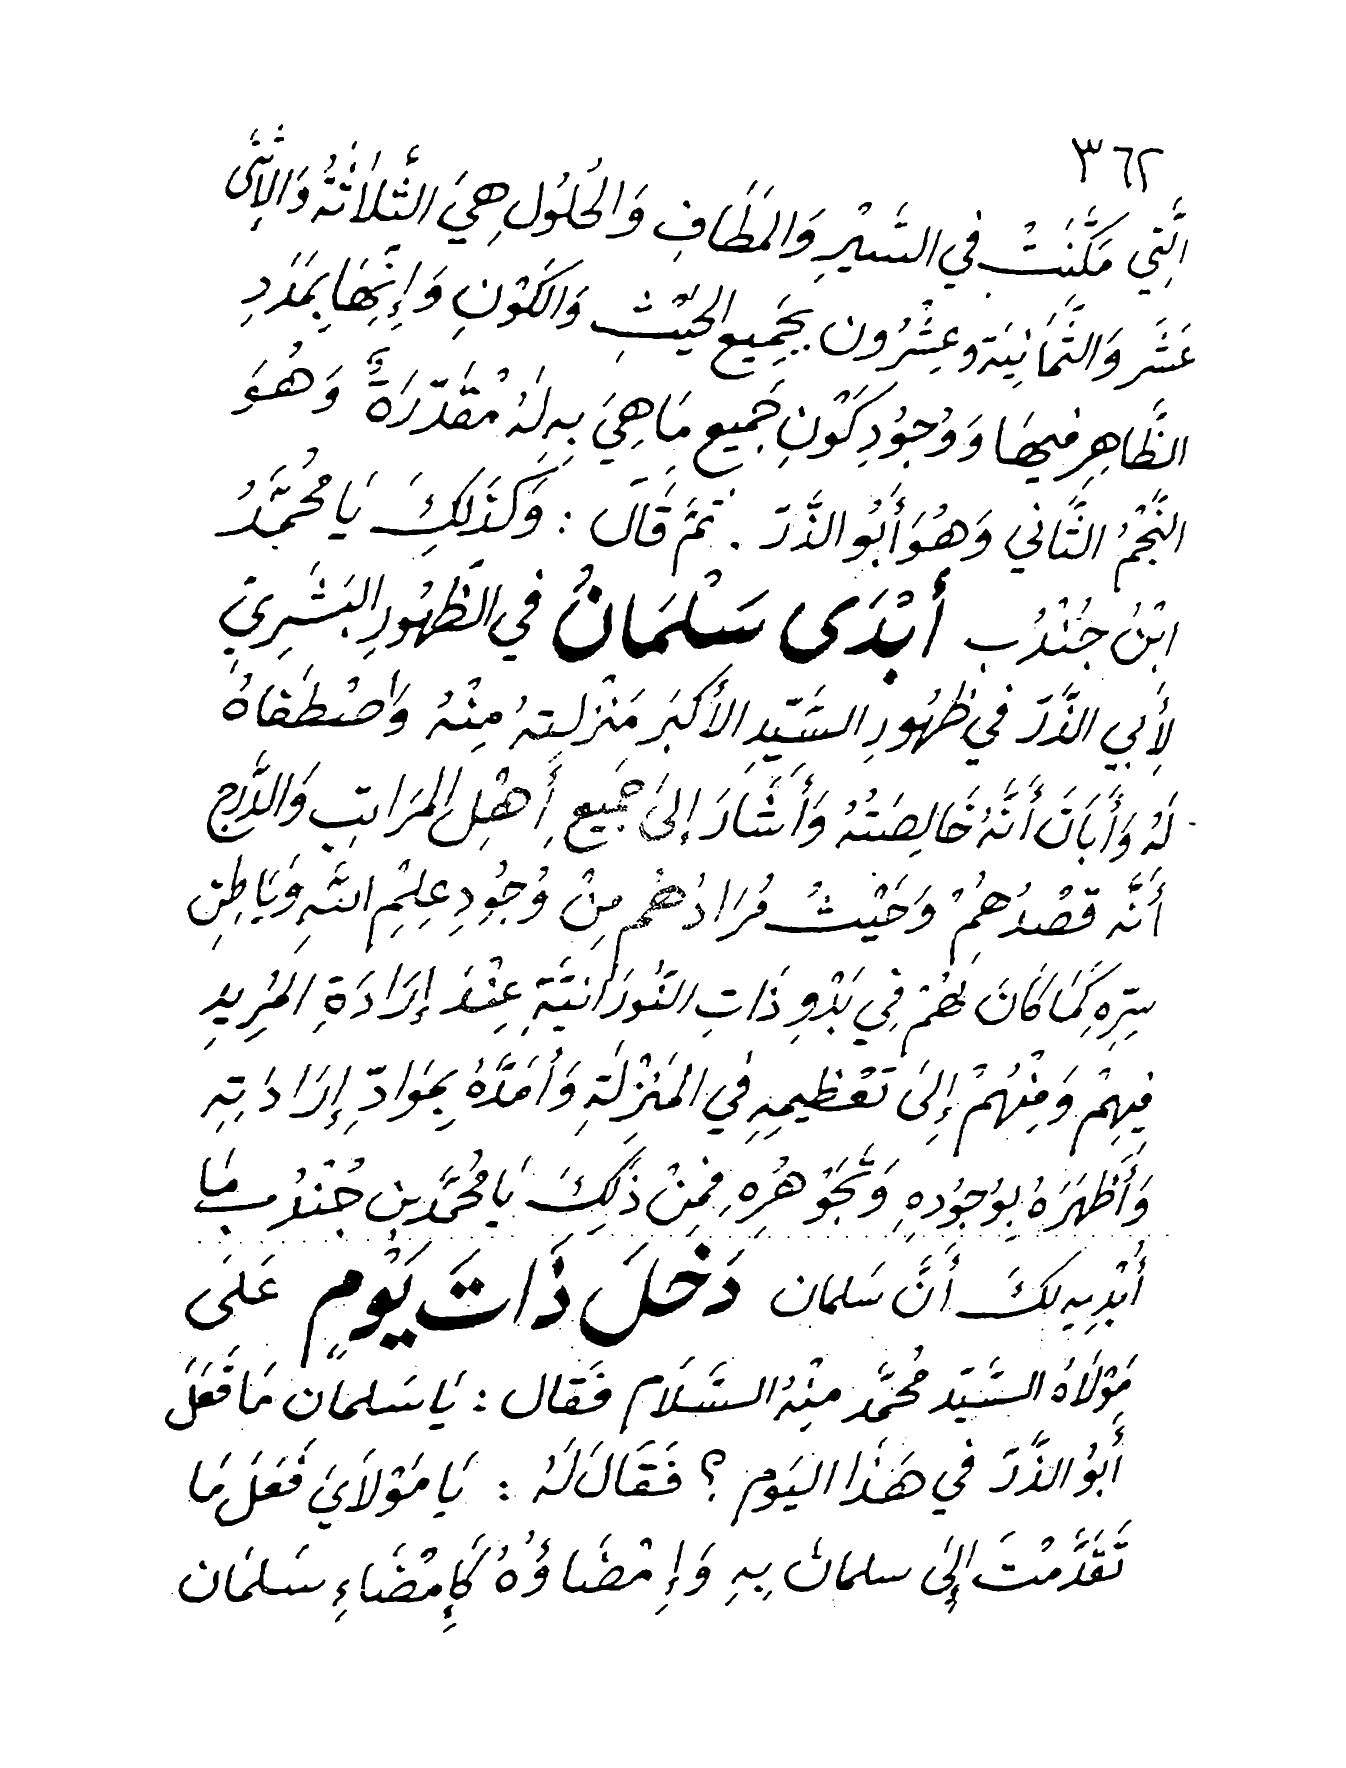 ٣٦٢
الَّتِي مَكَّنَتْ فِي السَّيْرِ وَالمَطَافِ وَالحُلُولِ هِيَ الثَّلَاثَةُ وَالإِثْنَى
عَشَر وَالثَّمَانِيَة وعِشْرُون بِجَمِيعِ الحَيْثِ وَالكَوْنِ وَإِنَّهَا بِمَدَدِ
الظَّاهِرِ فِيهَا وَوُجُودِ كَوْنِ جَمِيعِ مَا هِيَ بِهِ لَهُ مُقَدَّرَةٌ وَهُوَ
النَّجْمُ الثَّانِي وَهُوَ أَبُو الذَّرّ . ثُمَّ قَالَ : وَكَذَلِكَ يَا مُحَمَّدُ
ابْنُ جُنْدُبِ أَبْدَى سَلْمَانُ فِي الظُّهُورِ البَشَرِيِّ
لِأَبِي الذَّرّ فِي ظُهُورِ السَّيِّدِ الأَكْبَرِ مَنْزِلَتِهُ مِنْهُ وَاصْطَفَاهُ
لَهُ وَأَبَانَ أَنَّهُ خَالِصَتُهُ وَأَشَارَ إِلَى جَمِيعِ أَهْلِ المَرَاتِبِ وَالدَّرَجِ
أَنَّه قَصْدُهُمْ وَحَيْثُ مُرَادُهُم مِنْ وُجُودِ عِلْمِ اللَّهِ وَبَاطِنِ
سِرِّهِ كَمَا كَانَ لَهُمْ فِي بَدْوِ ذَاتِ النُّورَانِيَّةِ عِنْدَ إِرَادَةِ المُرِيدِ
فِيهِمْ وَمِنْهُمْ إِلَى تَعْظِيمِهِ فِي المَنْزِلَةِ وَأَمَدَّهُ بِمَوَادِّ إِرَادَتِهِ
وَأَظْهَرَهُ بِوُجُودِهِ وَتَجَوْهُرِهِ فَمِنْ ذَلِكَ يَا مُحَمَّد بن جُنْدُبِ مَا
أُبْدِيهِ لَكَ أَنَّ سَلمان دَخَلَ ذَاتَ يَوْمٍ عَلَى
مَوْلَاهُ السَّيِّد مُحَمَّد مِنْهُ السَّلَام فَقَال : يَا سَلمان مَا فَعَلَ
أَبُو الذَّرّ فِي هَذَا اليَوم ؟ فَقَالَ لَهُ : يَا مَوْلَايَ فَعَلَ مَا
تَقَدَّمْتَ إِلَى سلمان بِهِ وَإِمْضَاؤُهُ كَإِمْضَاءِ سَلمَان